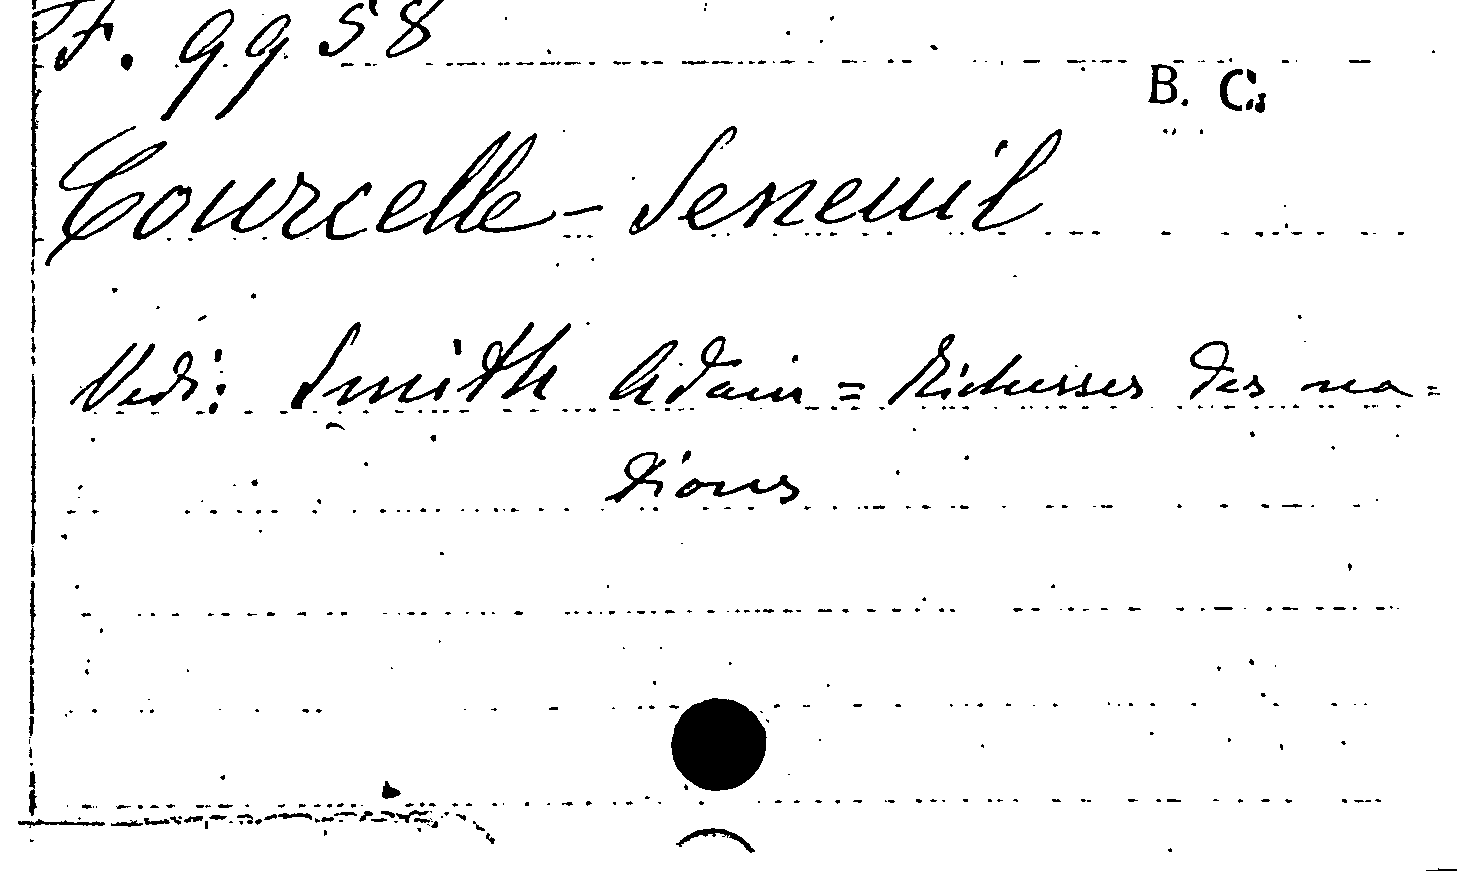 F. 9958
B. C.
Courcelle-Seneuil
Vedi: Smith Adam = Richesses des na=
tions